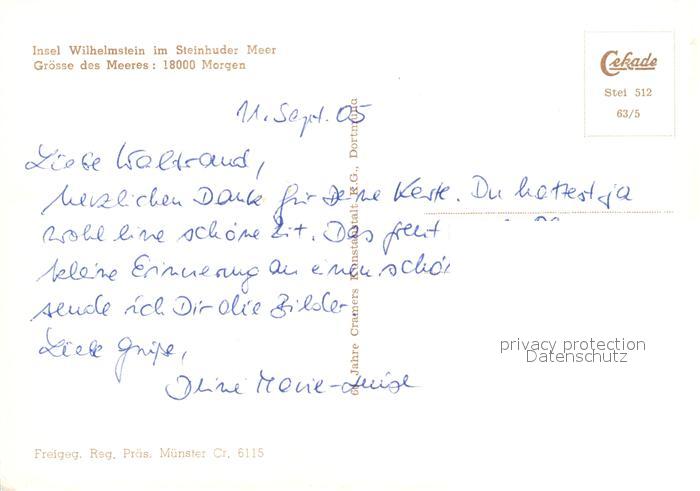 Insel Wilhelmstein im Steinhuder Meer
Grösse des Meeres: 18000 Morgen
Cekade
Stei 512
63/5
11. Sept. 05
Liebe Waltraud,
herzlichen Dank für Deine Karte. Du hattest ja
wohl eine schöne Zeit. Das freut
kleine Erinnerung an einen schö
sende ich Dir die Bilder.
Liebe Grüße,
Deine Marie-Luise
Jahre Cramers Kunstanstalt K.G., Dortmund
privacy protection
Datenschutz
Freigeg. Reg. Präs. Münster Cr. 6115